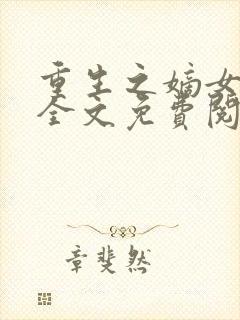 重生之嫡女
全文免費閱
章斐然